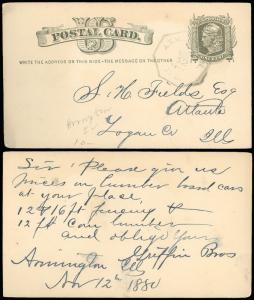 POSTAL CARD.
WRITE THE ADDRESS ON THIS SIDE - THE MESSAGE ON THE OTHER
S. H. Fields Esq
Atlanta
Logan Co
Ill
Sir Please give us
prices on lumber board cars
at your place
12 & 16 ft fencing &
12 ft Com lumber
and oblige Yours
Griffin Bros
Armington Ill
Nov 12th 1880